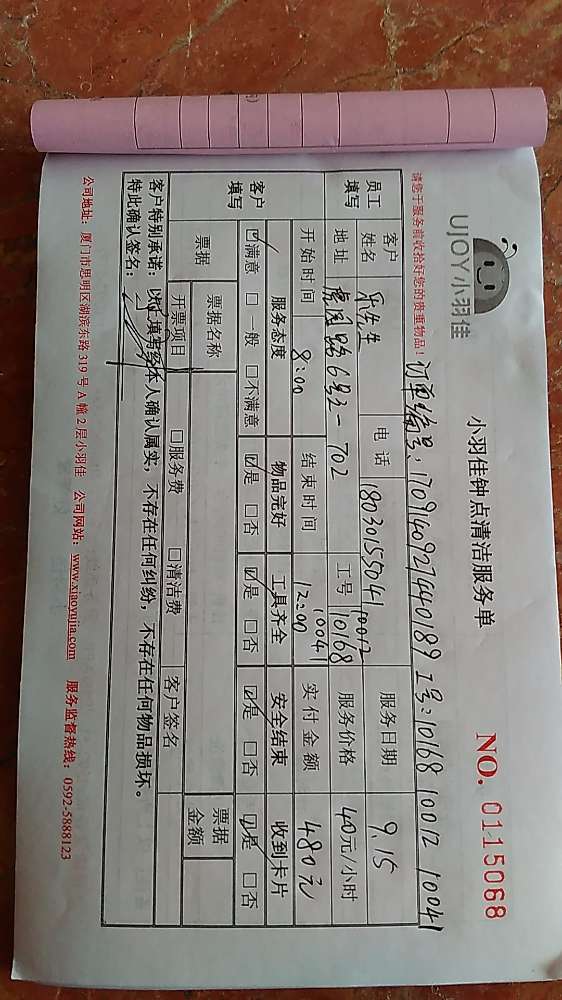 UJOY小羽佳
小羽佳钟点清洁服务单
NO. 0115068
请您于服务前收拾好您的贵重物品！
订单编号：170914092744018９ 工号：10168 10012 10041
员工填写
客户姓名 乐先生 电话 18030155041 服务日期 9.15
地址 虎园路6号之一702 工号 10012 10168 10041 服务价格 40元/小时
开始时间 8:00 结束时间 12:00 实付金额 480元
客户填写
服务态度 物品完好 工具齐全 安全结束 收到卡片
☑满意 □一般 □不满意 ☑是 □否 ☑是 □否 ☑是 □否 ☑是 □否
票据
票据名称 票据金额
开票项目 □服务费 □清洁费 客户签名
客户特别承诺：以上填写经本人确认属实，不存在任何纠纷，不存在任何物品损坏。
特此确认签名：
公司地址：厦门市思明区湖滨东路319号A幢2层小羽佳 公司网站：www.xiaoyujia.com 服务监督热线：0592-5888123